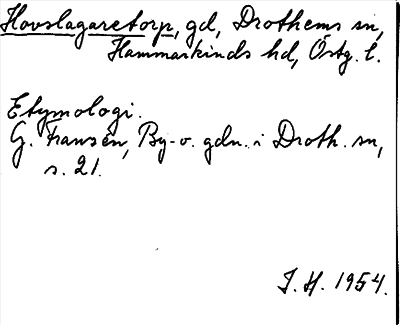 Hovslagaretorp, gd, Drothems sn,
Hammarkinds hd, Östg. l.
Etymologi.
G. Franzén, By- o. gdn. i Droth. sn,
s. 21.
I. H. 1954.